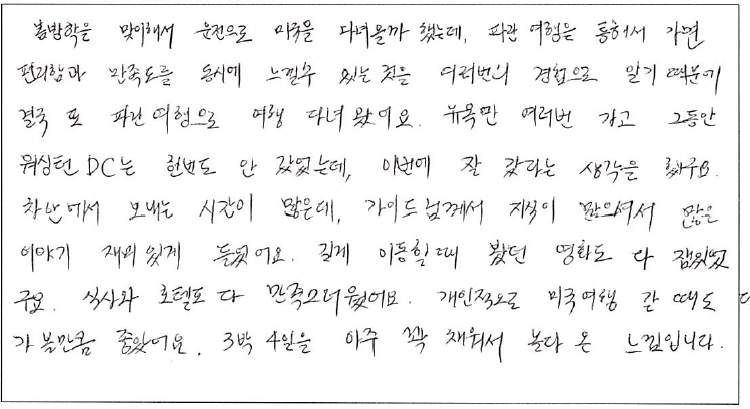 봄방학을 맞이해서 운전으로 미국을 다녀올까 했는데, 파란 여행을 통해서 가면
편리함과 만족도를 동시에 느낄수 있는 것을 여러번의 경험으로 알기 때문에
결국 또 파란여행으로 여행 다녀왔어요. 뉴욕만 여러번 가고 그동안
워싱턴 DC는 한번도 안 갔었는데, 이번에 잘 갔다는 생각을 해구요.
차안에서 보내는 시간이 많은데, 가이드님께서 지식이 많으셔서 많은
이야기 재미있게 들었어요. 길게 이동할때 봤던 영화도 다 잼있었
구요. 식사와 호텔도 다 만족스러웠어요. 개인적으로 미국여행 간 때도
가볼만큼 좋았어요. 3박 4일을 아주 꽉 채워서 놀다 온 느낌입니다.